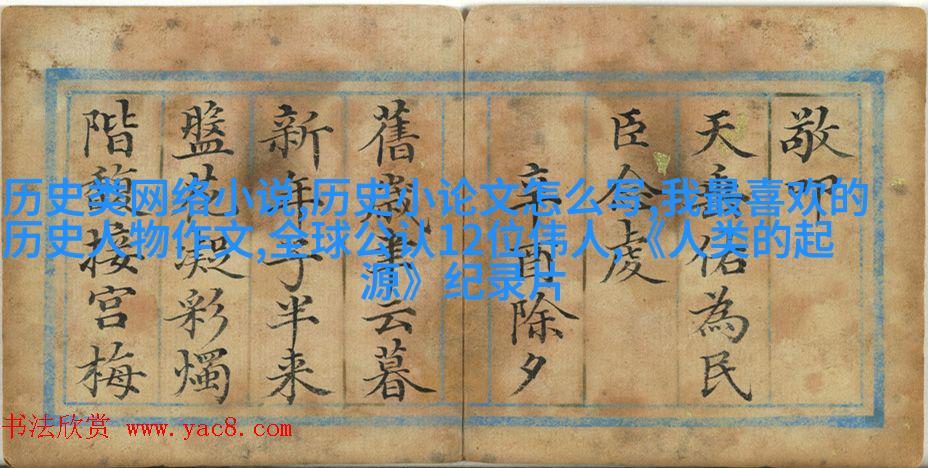 敬叩
天垂佑為民
臣今虔
辛酉除夕
舊歲聿云暮
新年子半来
盤花凝彩燭
階馥接宮梅
历史类网络小说,历史小论文怎么写,我最喜欢的
历史人物作文,全球公认12位伟人,《人类的起
源》纪录片
书法欣赏 www.yac8.com